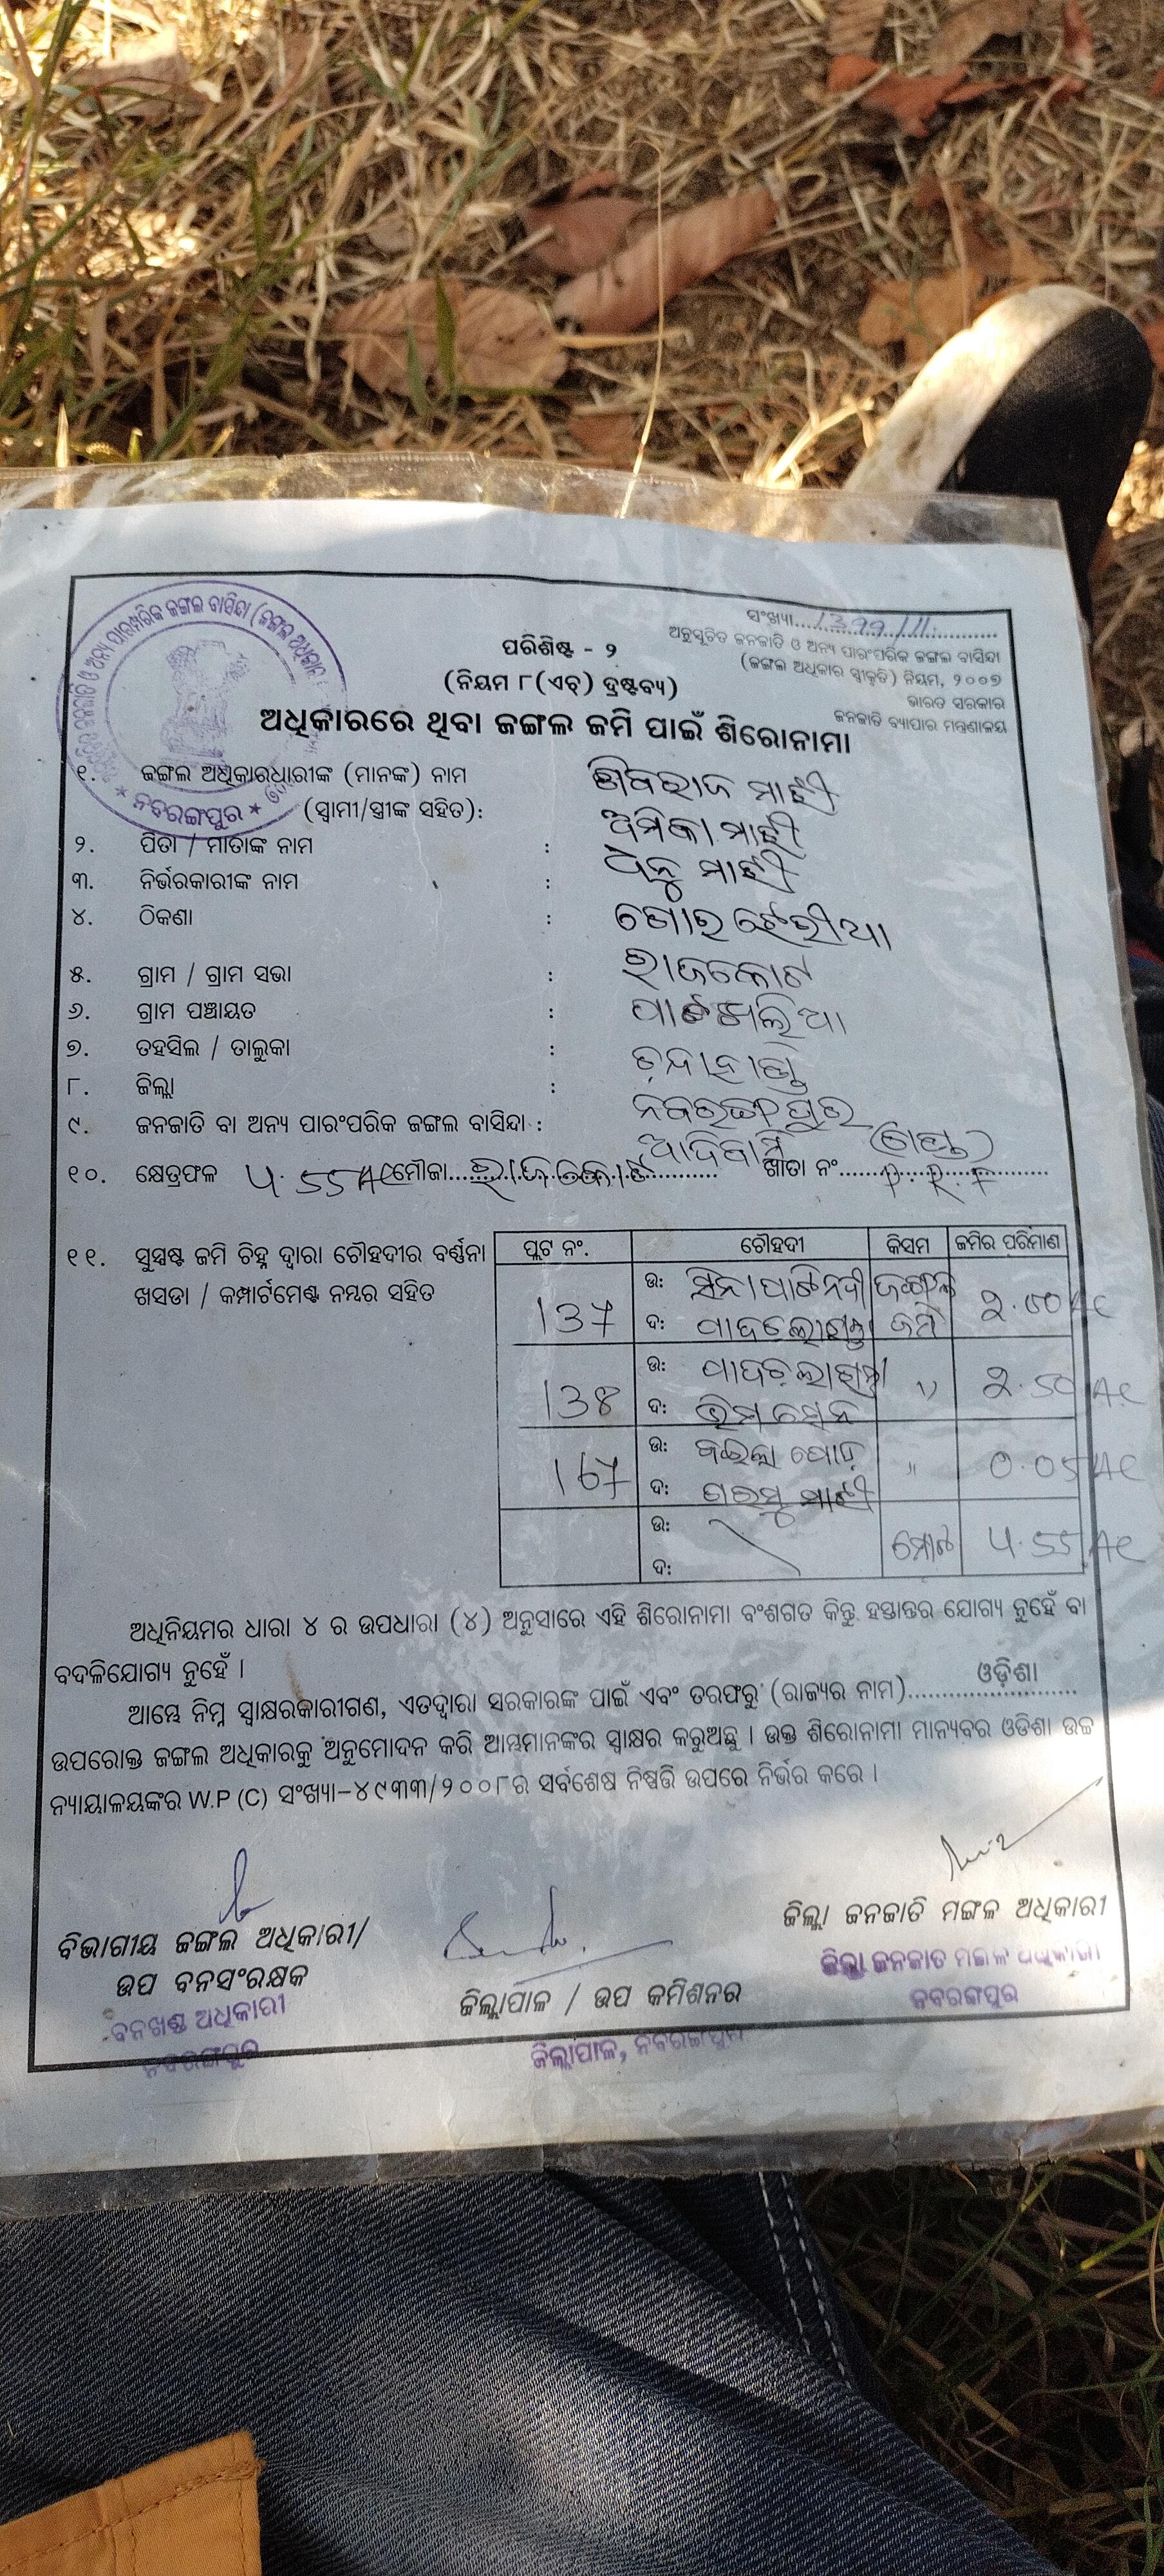 ସଂଖ୍ୟା...1399/11...
ଅନୁସୂଚିତ ଜନଜାତି ଓ ଅନ୍ୟ ପାରଂପରିକ ଜଙ୍ଗଲ ବାସିନ୍ଦା
(ଜଙ୍ଗଲ ଅଧିକାର ସ୍ୱୀକୃତି) ନିୟମ, ୨୦୦୭
ଭାରତ ସରକାର
ଜନଜାତି ବ୍ୟାପାର ମନ୍ତ୍ରଣାଳୟ
ପରିଶିଷ୍ଟ - ୨
(ନିୟମ ୮(ଏଚ୍) ଦ୍ରଷ୍ଟବ୍ୟ)
ଅଧିକାରରେ ଥିବା ଜଙ୍ଗଲ ଜମି ପାଇଁ ଶିରୋନାମା
ଓ ଅନ୍ୟ ପାରମ୍ପରିକ ଜଙ୍ଗଲ ବାସିନ୍ଦା (ଜଙ୍ଗଲ ଅଧିକାର
* ନବରଙ୍ଗପୁର *
୧. ଜଙ୍ଗଲ ଅଧିକାରଧାରୀଙ୍କ (ମାନଙ୍କ) ନାମ ଶିବରାଜ ମାଝୀ
(ସ୍ୱାମୀ/ସ୍ତ୍ରୀଙ୍କ ସହିତ): ଅମିକା ମାଝୀ
୨. ପିତା / ମାତାଙ୍କ ନାମ : ଧନୁ ମାଝୀ
୩. ନିର୍ଭରକାରୀଙ୍କ ନାମ :
୪. ଠିକଣା :
୫. ଗ୍ରାମ / ଗ୍ରାମ ସଭା : ରାଜକୋଟ
୬. ଗ୍ରାମ ପଞ୍ଚାୟତ :
୭. ତହସିଲ / ତାଲୁକା : ଚନ୍ଦାହାଣ୍ଡି
୮. ଜିଲ୍ଲା : ନବରଙ୍ଗପୁର
୯. ଜନଜାତି ବା ଅନ୍ୟ ପାରଂପରିକ ଜଙ୍ଗଲ ବାସିନ୍ଦା : ଆଦିବାସୀ (ଗଣ୍ଡ)
୧୦. କ୍ଷେତ୍ରଫଳ ୫.55 AC ମୌଜା...ରାଜକୋଟ... ଖାତା ନଂ...P.R.F...
୧୧. ସୁସ୍ପଷ୍ଟ ଜମି ଚିହ୍ନ ଦ୍ୱାରା ଚୌହଦୀର ବର୍ଣ୍ଣନା
ଖସଡା / କମ୍ପାର୍ଟମେଣ୍ଟ ନମ୍ବର ସହିତ
ପ୍ଲଟ ନଂ. ଚୌହଦୀ କିସମ ଜମିର ପରିମାଣ
137 ଉ: ଜଙ୍ଗଲ
ଦ: ଜମି
138 ଉ: " 2.50 AC
ଦ: ଭିମ ସେନ
167 ଉ: " 0.05 AC
ଦ:
ଉ: ମୋଟ ୫.55 AC
ଦ:
ଅଧିନିୟମର ଧାରା ୪ ର ଉପଧାରା (୪) ଅନୁସାରେ ଏହି ଶିରୋନାମା ବଂଶଗତ କିନ୍ତୁ ହସ୍ତାନ୍ତର ଯୋଗ୍ୟ ନୁହେଁ ବା
ବଦଳିଯୋଗ୍ୟ ନୁହେଁ ।
ଆମ୍ଭେ ନିମ୍ନ ସ୍ୱାକ୍ଷରକାରୀଗଣ, ଏତଦ୍ୱାରା ସରକାରଙ୍କ ପାଇଁ ଏବଂ ତରଫରୁ (ରାଜ୍ୟର ନାମ)...ଓଡ଼ିଶା...
ଉପରୋକ୍ତ ଜଙ୍ଗଲ ଅଧିକାରକୁ ଅନୁମୋଦନ କରି ଆମ୍ଭମାନଙ୍କର ସ୍ୱାକ୍ଷର କରୁଅଛୁ । ଉକ୍ତ ଶିରୋନାମା ମାନ୍ୟବର ଓଡିଶା ଉଚ୍ଚ
ନ୍ୟାୟାଳୟଙ୍କର W.P (C) ସଂଖ୍ୟା-୪୯୩୩/୨୦୦୮ର ସର୍ବଶେଷ ନିଷ୍ପତ୍ତି ଉପରେ ନିର୍ଭର କରେ ।
ବିଭାଗୀୟ ଜଙ୍ଗଲ ଅଧିକାରୀ/
ଉପ ବନସଂରକ୍ଷକ
ବନଖଣ୍ଡ ଅଧିକାରୀ
ନବରଙ୍ଗପୁର
ଜିଲ୍ଲାପାଳ / ଉପ କମିଶନର
ଜିଲ୍ଲାପାଳ, ନବରଙ୍ଗପୁର
ଜିଲ୍ଲା ଜନଜାତି ମଙ୍ଗଳ ଅଧିକାରୀ
ଜିଲ୍ଲା ଜନଜାତି ମଙ୍ଗଳ ଅଧିକାରୀ
ନବରଙ୍ଗପୁର